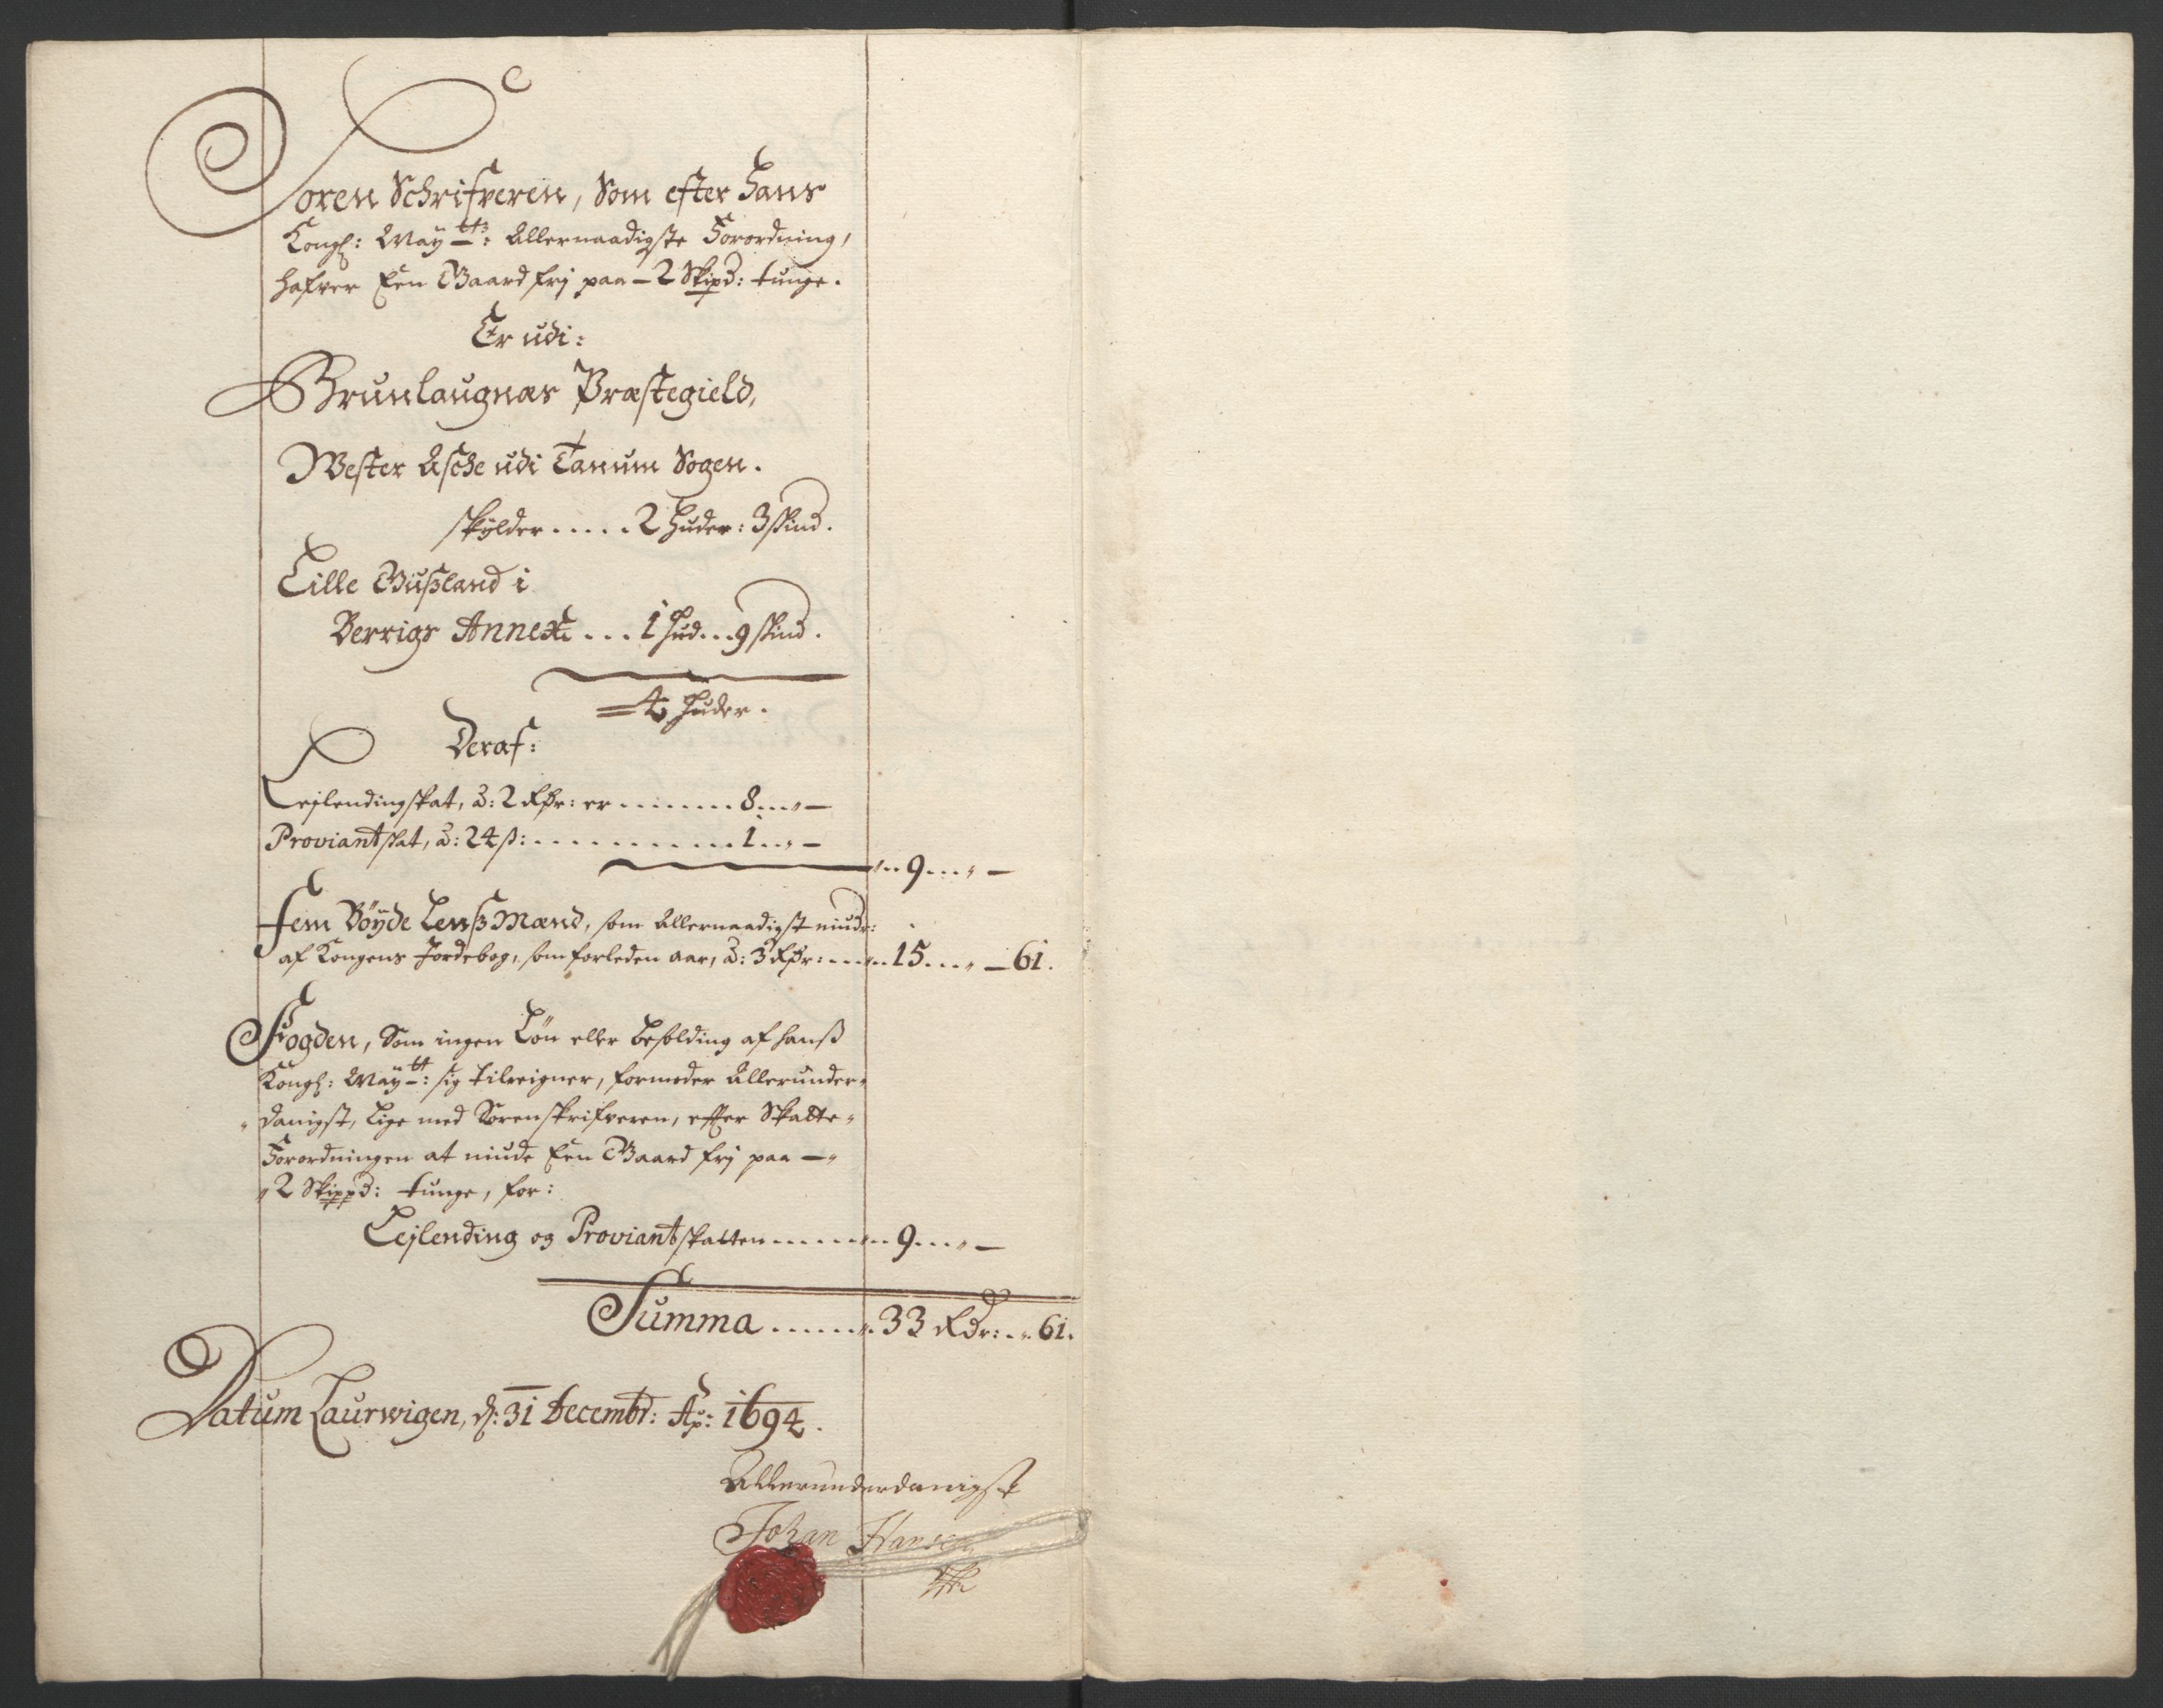 Soren Schrifveren, Som efter Hans
Kongl: May.ttz: Allernaadigste Forordning,
hafver Een Gaard frj paa - 2 Skipd: tunge.
Er udi:
Brunlaugnæs Præstegield,
Wester Asche udi Tanum Sogen.
skylder..... 2 huder: 3 skind.
Lille Gusland i
Berrigs Annex.... 1 hud... 9 skind.
4 huder.
Deraf:
Lejlendingskat, á: 2 Rdr: er ....... 8...„ —
Proviantskat, á: 24 ß: ........... 1..„ —
„.. 9...„ —
Fem Böyde Lenßmænd, som Allernaadigst niude:
af Kongens Jordebog, som forleden aar, á: 3 Rdr: ...„.. 15...„ — 61.
Fogden, Som ingen Lön eller besolding af hanß
Kongl: May.tt: sig tilreigner, formoder Allerunder„
„danigst, lige med Sorenskrifveren, efter Skatte„
Forordningen at niude Een Gaard frj paa —„
„2 Skippd: tunge, for:
Lejlending og Proviantskatten ......„.. 9...„ —
Summa ......„. 33 Rdr:..„. 61.
Datum Laurwigen, d: 31 Decembr: Ao: 1694.
Allerunderdanigst
Johan Hansen